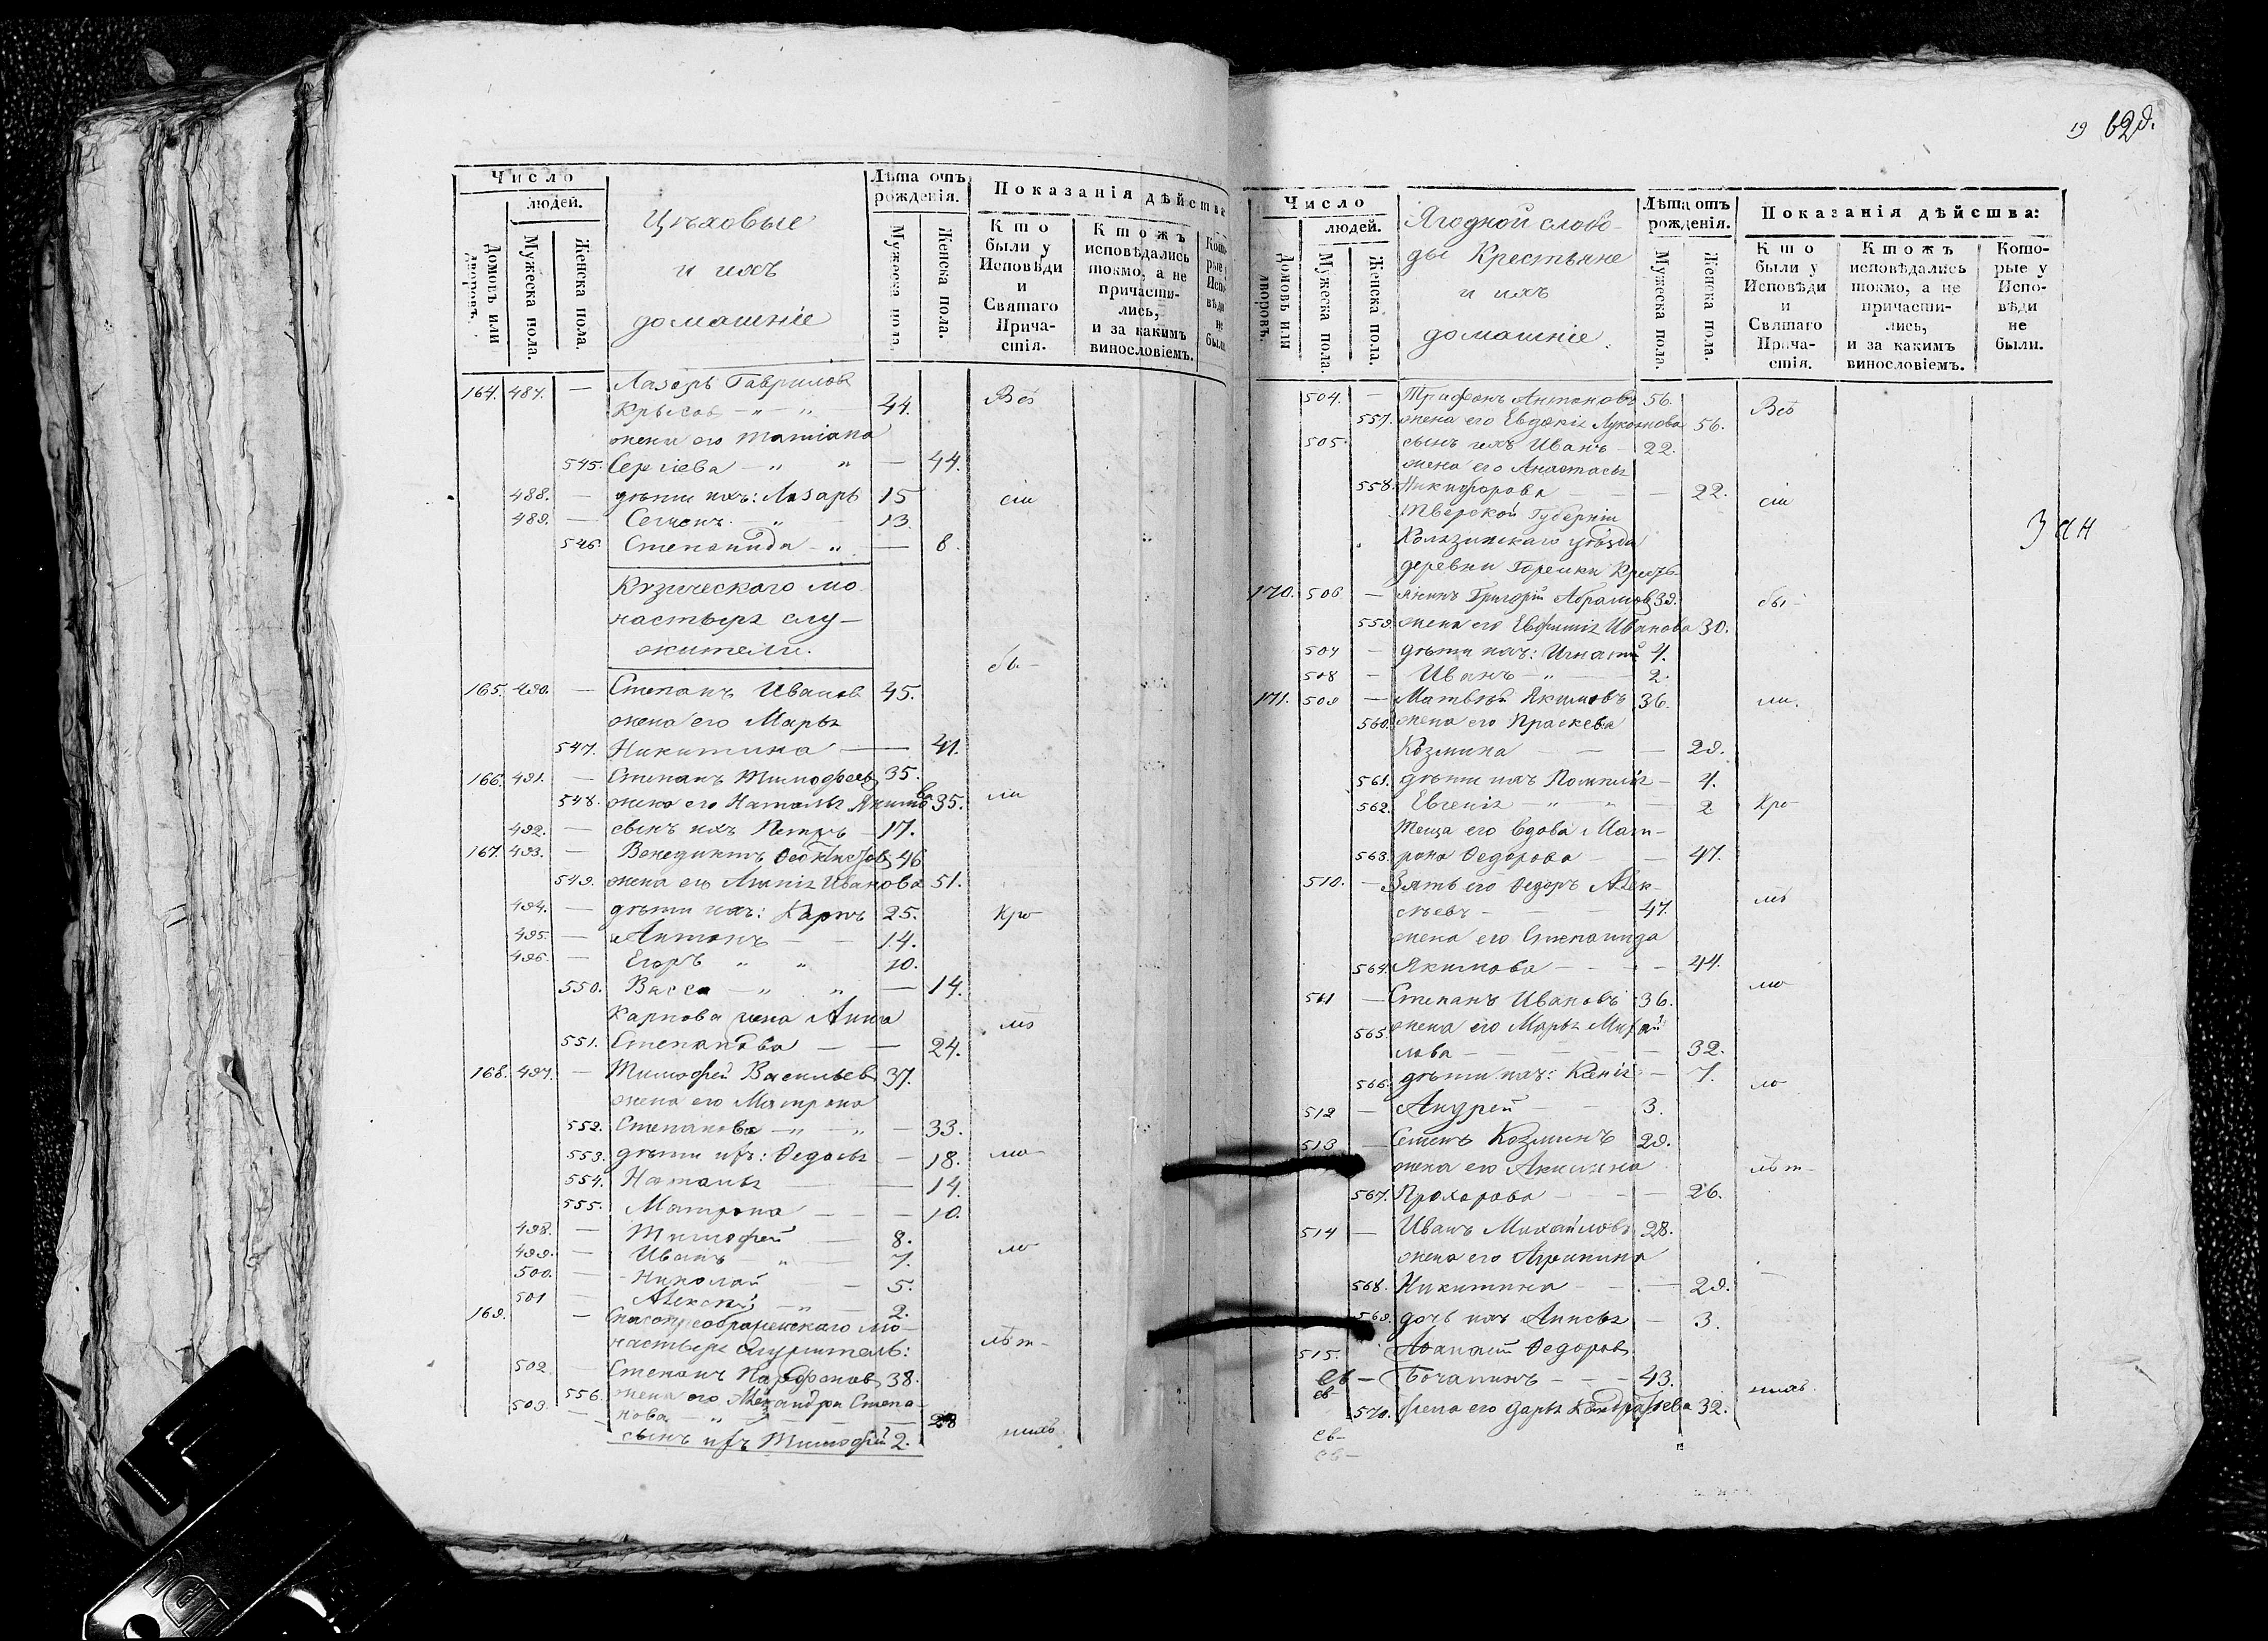 Число
людей.
Домовъ или дворовъ.
Мужеска пола.
Женска пола.
Цѣховые
и ихъ
домашніе
Лѣта отъ рожденія.
Мужеска пола.
Женска пола.
Показанія дѣйства
Кто были у Исповѣди и Святаго Причастія.
Ктожъ исповѣдались токмо, а не причастились, и за какимъ винословіемъ.
164. 487. — Лазарь Гавриловъ
Крысовъ — " — " 44. Всѣ
жена его Татіана
545. Сергіева — " " — 44.
488. — дѣти ихъ: Лазарь 15 сіи
489. — Семенъ " 13.
546. Степанида — " — 8.
Кизическаго мо
настыря слу—
жители.
бы—
165. 490. — Степанъ Ивановъ 45.
жена его Марья
547. Никитина — 41.
166. 491. — Степанъ Тимофеевъ 35.
548. жена его Наталья Якимова 35. ли
492. — сынъ ихъ Петръ — 17.
167. 493. — Венедиктъ Феоктистовъ 46
549. жена его Ивановa 51.
494. — дѣти ихъ: Карпъ 25. Кро—
495. — Антонъ — 14.
496. — Егоръ " " 10.
550. Васса — " " — 14.
Карпова жена Анна
551. Степанова — — 24. мѣ
168. 497. — Тимофей Васильевъ 37.
жена его Матрона
552. Степанова — " — " — 33.
553. дѣти ихъ: Федосья — 18. ма—
554. Наталья — 14.
555. Матрона — — 10.
498. — Тимофей — 8.
499. — Иванъ " — 7. ло
500. — Николай — 5.
501 — Алексѣй — " — 2.
169. — Спасопреображенскаго мо—
настыря служитель: лѣт—
502. Степанъ Парфеновъ 38.
556. жена его Александра Степа—
503. — нова — " — 28
сынъ ихъ Тимофей 2. нихъ
19 629.
Число
людей.
Домовъ или дворовъ.
Мужеска пола.
Женска пола.
Ягодной слобо—
ды Крестьяне
и ихъ
домашніе.
Лѣта отъ рожденія.
Мужеска пола.
Женска пола.
Показанія дѣйства:
Кто были у Исповѣди и Святаго Причастія.
Ктожъ исповѣдались токмо, а не причастились, и за какимъ винословіемъ.
Которые у Исповѣди не были.
504. — Трифонъ Антоновъ 56. Всѣ
557. жена его Евдокія Лукоянова 56.
505. сынъ ихъ Иванъ — 22.
жена его Анастасья
558. Никифорова — — 22. сіи
Тверской Губерніи
Колязинскаго уѣзда
деревни Горенки Кресть—
170. 506 — янинъ Григорій Абрамовъ 39. бы—
559. жена его Евфимія Иванова 30.
507 — дѣти ихъ: Игнатій 4.
508 — Иванъ — " — 2.
171. 509 — Матвѣй Якимовъ 36. ли.
560. жена его Праскева
Козмина — — 29.
561. дѣти ихъ — 4.
562. Евгенія — " — 2. Кро—
Теща его вдова Мат—
563. рона Федорова — — 47.
510. — Зять его Федоръ Алек—
сѣевъ — 47. мѣ
жена его Степанида
564. Якимова — — 44.
511 — Степанъ Ивановъ 36. ма
565. жена его Марья Михай
лова — — 32.
566. дѣти ихъ: Ксенія — 7. ло
512 — Андрей — 3.
513 — Семенъ Козминъ 29.
жена его Акилина лѣт—
567. Прохорова — — 26.
514 — Иванъ Михайловъ 28.
жена его Агрипина
568. Никитина — — 29.
569. дочь ихъ Анисья — 3.
515. Афанасій Федоровъ
Бочагинъ — — 43. нихъ.
570. жена его Дарья Кондратьева 32.